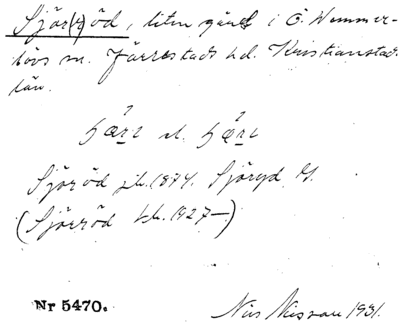 Sjör(r)öd, liten gård i Ö. Vemmer-
lövs sn. Järrestads hd. Kristianstads
län.
Sjöröd jb. 1874. Sjöryd
(Sjörröd tb. 1927—)
Nr 5470.
Nils Nilsson 1931.